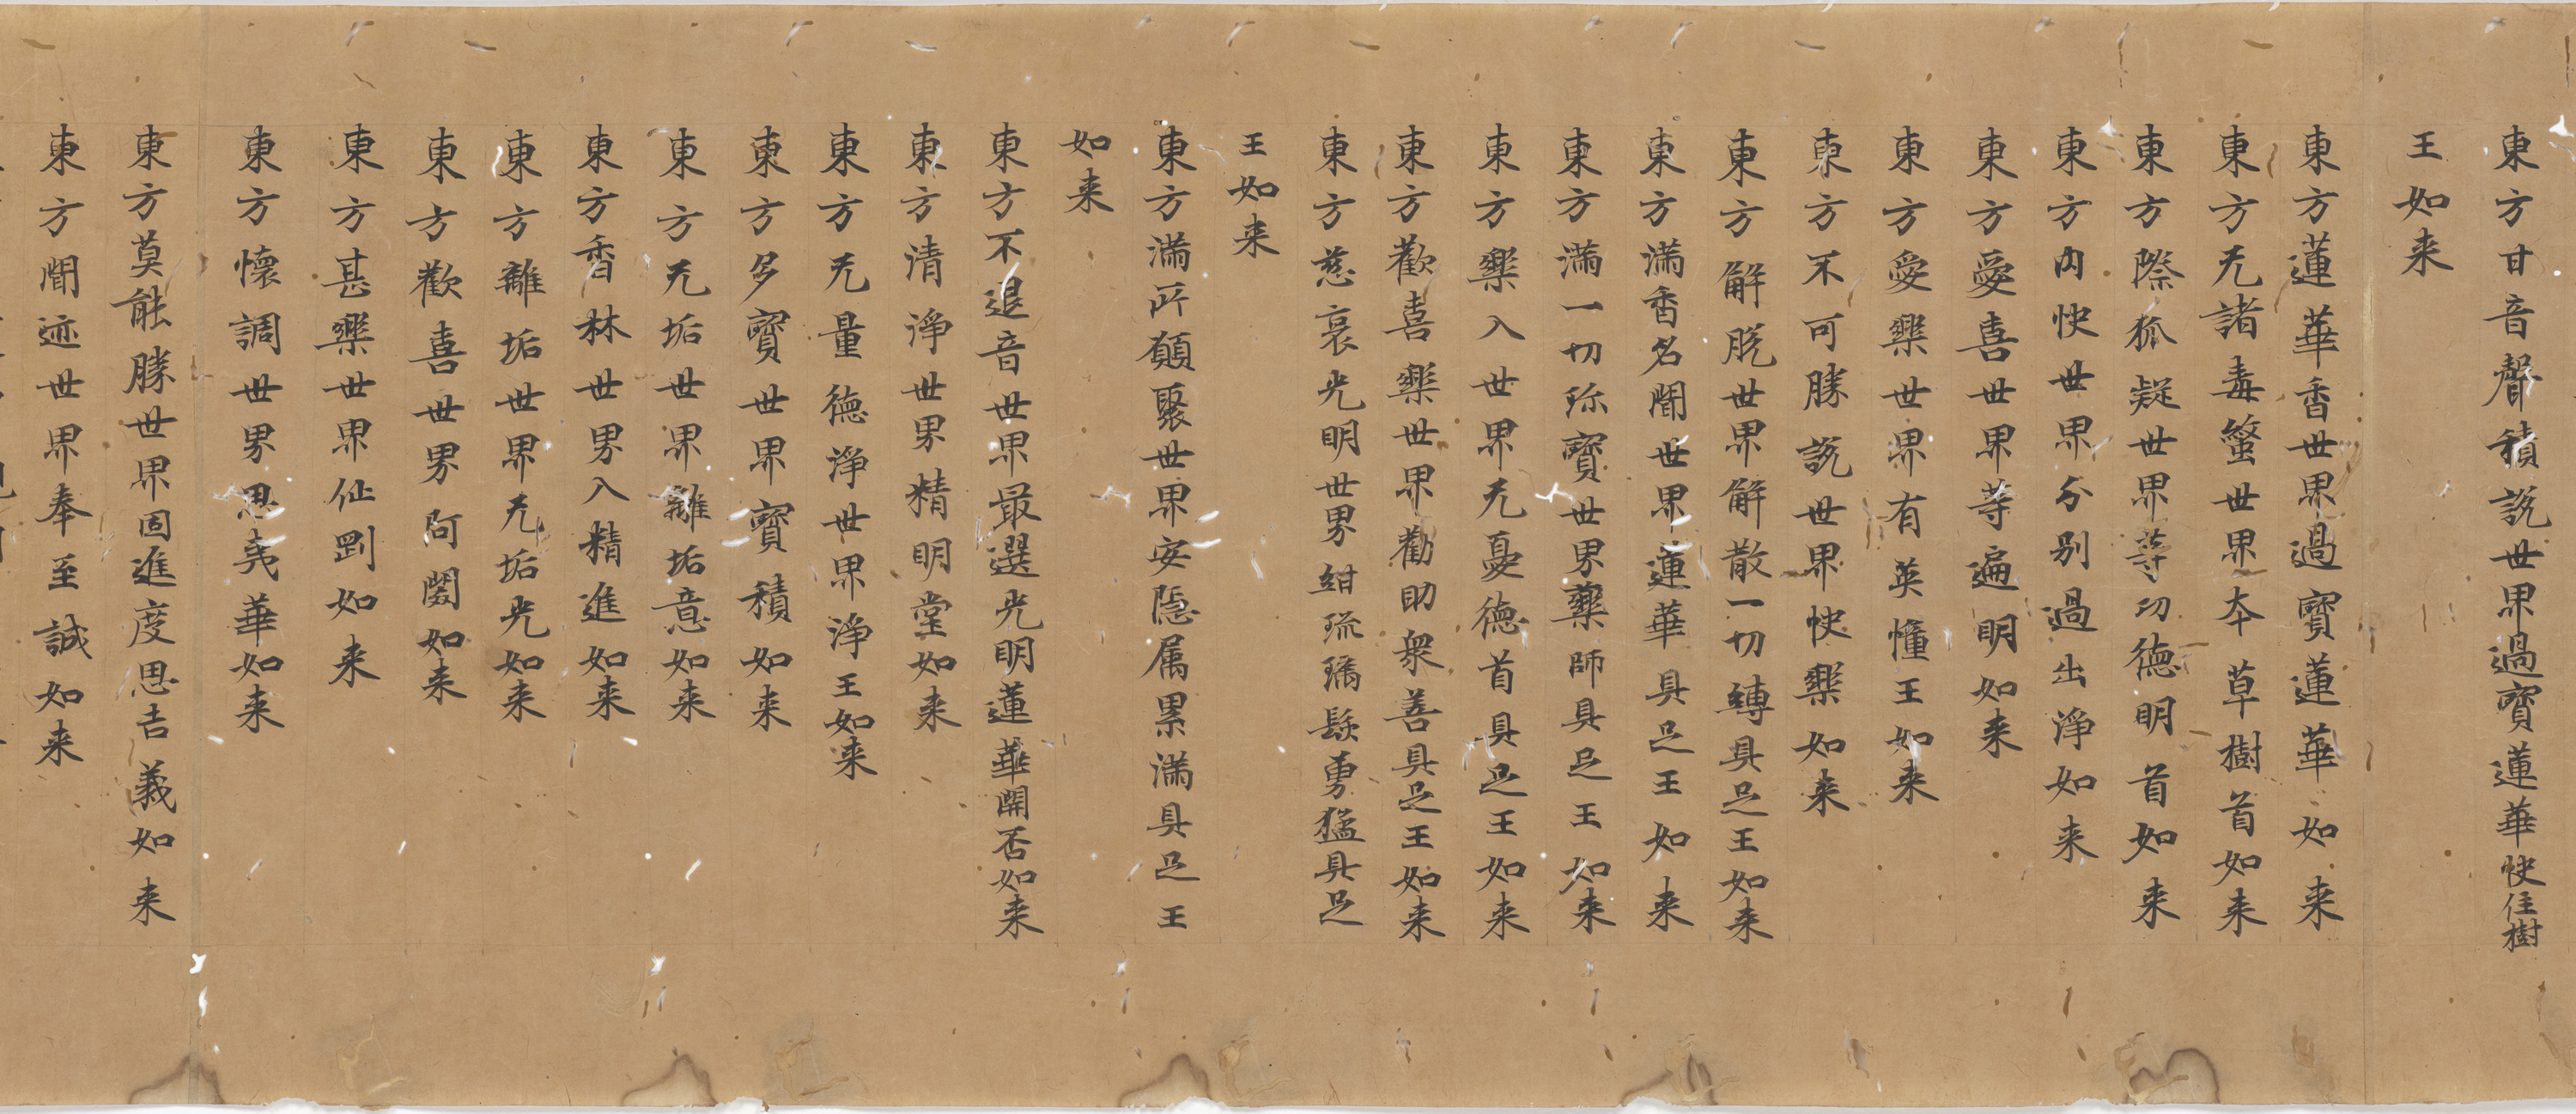 東方甘音聲積說世界過寶蓮華快住樹
王如来
東方蓮華香世界過寶蓮華如来
東方无諸毒螫世界夲草樹首如来
東方際狐疑世界等功德明首如来
東方內快世界分别過出淨如来
東方愛喜世界等遍明如来
東方愛樂世界有英憧王如来
東方不可勝説世界快樂如来
東方解脫世界解散一切縛具足王如来
東方滿香名聞世界蓮華具足王如来
東方滿一切珎寶世界藥師具足王如来
東方樂入世界无憂德首具足王如来
東方歡喜樂世界勸助衆善具足王如来
東方慈哀光明世界紺琉璃髮勇猛具足
王如来
東方滿所願聚世界安隠属累滿具足王
如来
東方不退音世界最選光明蓮華開否如来
東方清淨世界精明堂如来
東方无量德淨世界淨王如来
東方多寶世界寶積如来
東方无垢世界離垢意如来
東方香林世界入精進如来
東方離垢世界无垢光如来
東方歡喜世界阿閦如来
東方甚樂世界仙剛如来
東方懷調世界思夷華如来
東方莫能勝世界固進度思吉義如来
東方聞迹世界奉至誠如来